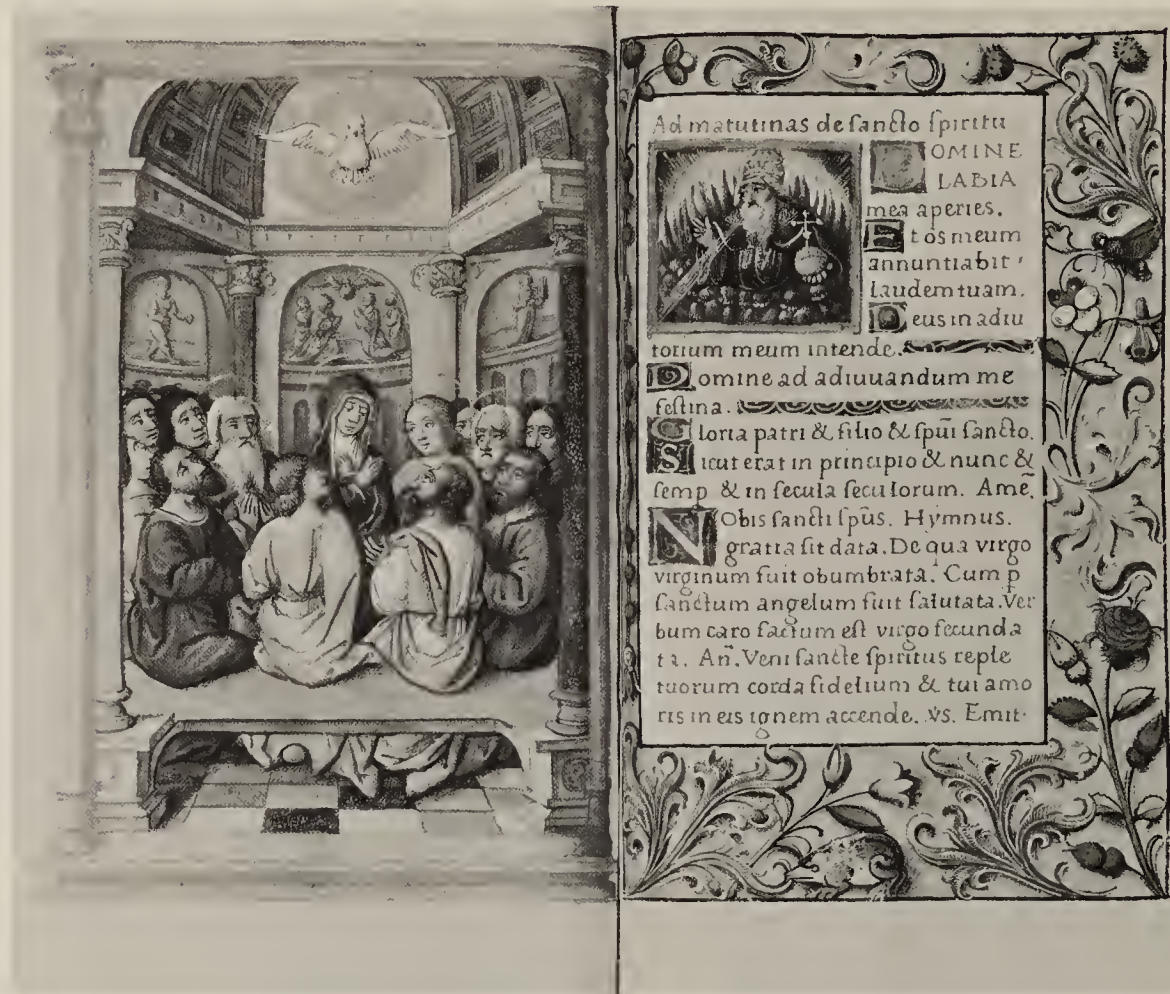 Ad matutinas de sancto spiritu
DOMINE
LABIA
mea aperies.
Et os meum
annuntiabit
laudem tuam.
Deus in adiu
torium meum intende.
Domine ad adiuuandum me
festina.
Gloria patri & filio & spūi sancto.
Sicut erat in principio & nunc &
semp & in secula seculorum. Amē.
NObis sancti spūs. Hymnus.
gratia sit data. De qua virgo
virginum fuit obumbrata. Cum p
sanctum angelum fuit salutata. Ver
bum caro factum est virgo fecunda
ta. An̄. Veni sancte spiritus reple
tuorum corda fidelium & tui amo
ris in eis ignem accende. vs. Emit